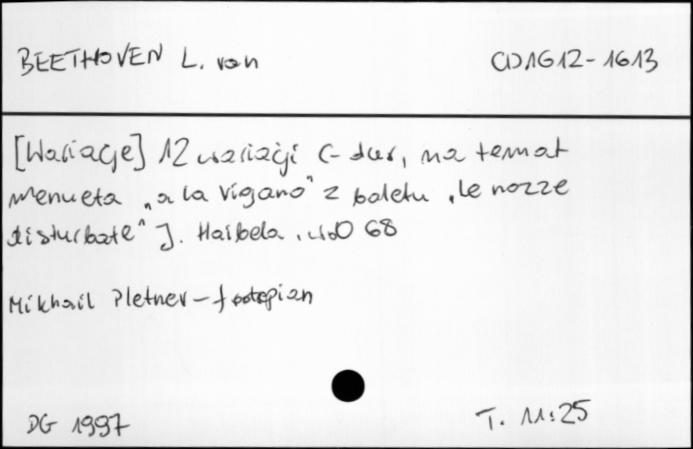 BEETHOVEN L. van
CD1612-1613
[Wariacje] 12 wariacji C-dur, na temat
menueta „a la Vigano” z baletu „le nozze
disturbate” J. Haibela, WoO 68
Mikhail Pletnev - fortepian
DG 1997
T. 11:25